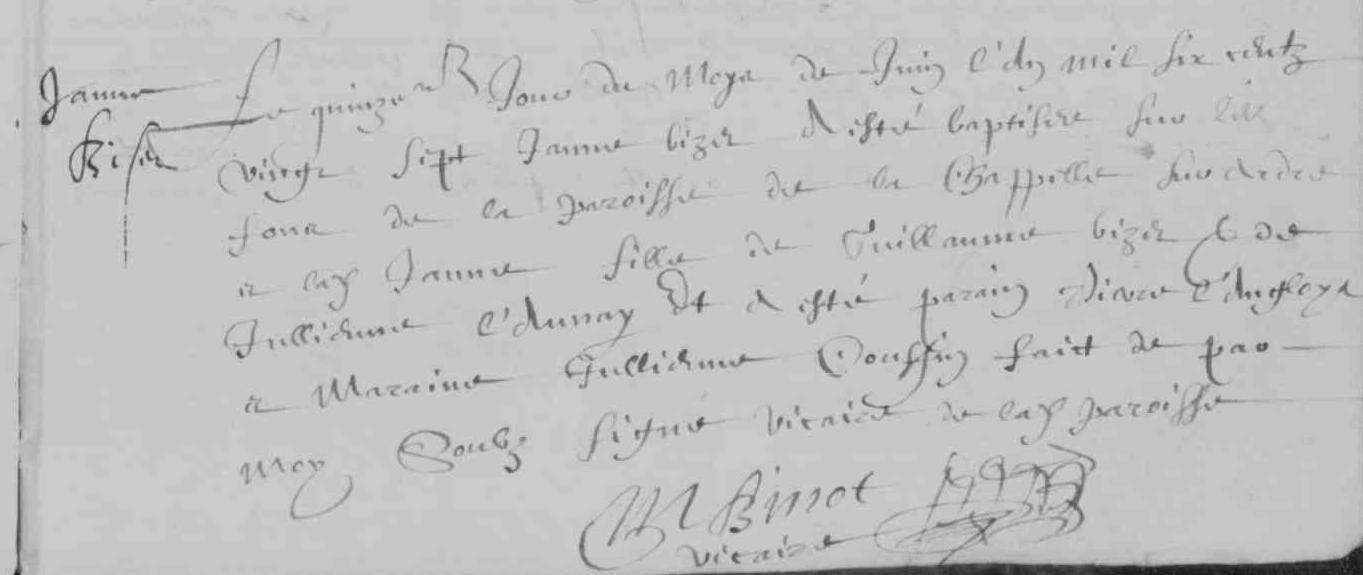 Janne
Biser
Le quinze Jour de Moys de Juin l'an mil six centz
vingt sept Janne bizer a esté baptisée sur les
fons de la paroisse de la Chappelle sur ardre
et lad Janne fille de Guillaume bizer & de
Jullienne l'aunay Et a esté parain Pierre l'Angloys
et Maraine Jullienne Couffin faict de par
moy Soubz signé vicaire de lad paroisse
M Binot
vicaire